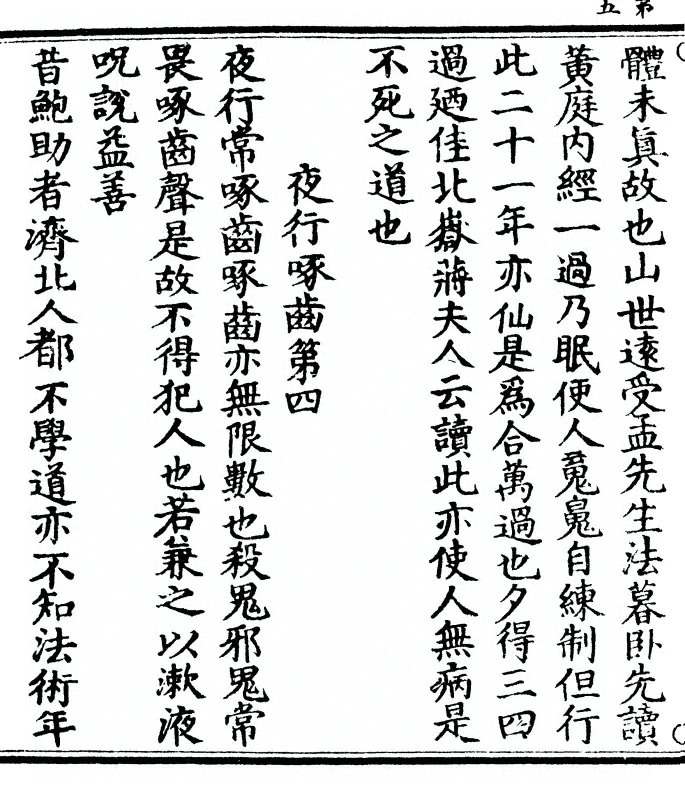 第五
體未眞故也山世遠受孟先生法暮卧先讀
黃庭内經一過乃眠使人䰟魄自練制但行
此二十一年亦仙是爲合萬過也夕得三四
過廼佳北嶽蔣夫人云讀此亦使人無病是
不死之道也
夜行啄齒第四
夜行常啄齒啄齒亦無限數也殺鬼邪鬼常
畏啄齒聲是故不得犯人也若兼之以漱液
呪說益善
昔鮑助者濟北人都不學道亦不知法術年